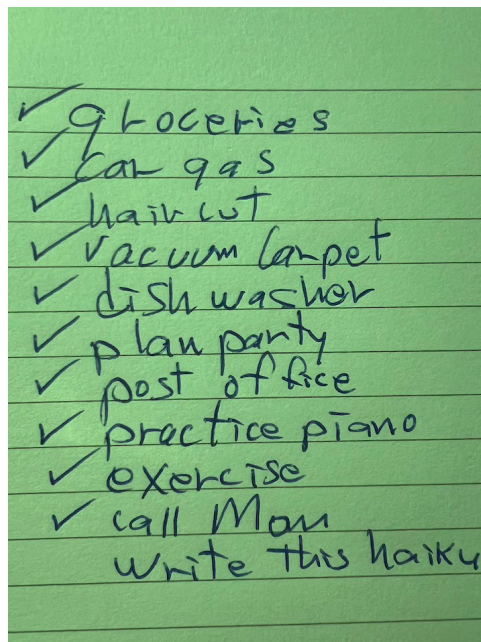 ✓ groceries
✓ car gas
✓ haircut
✓ vacuum carpet
✓ dishwasher
✓ plan party
✓ post office
✓ practice piano
✓ exercise
✓ call Mom
write this haiku